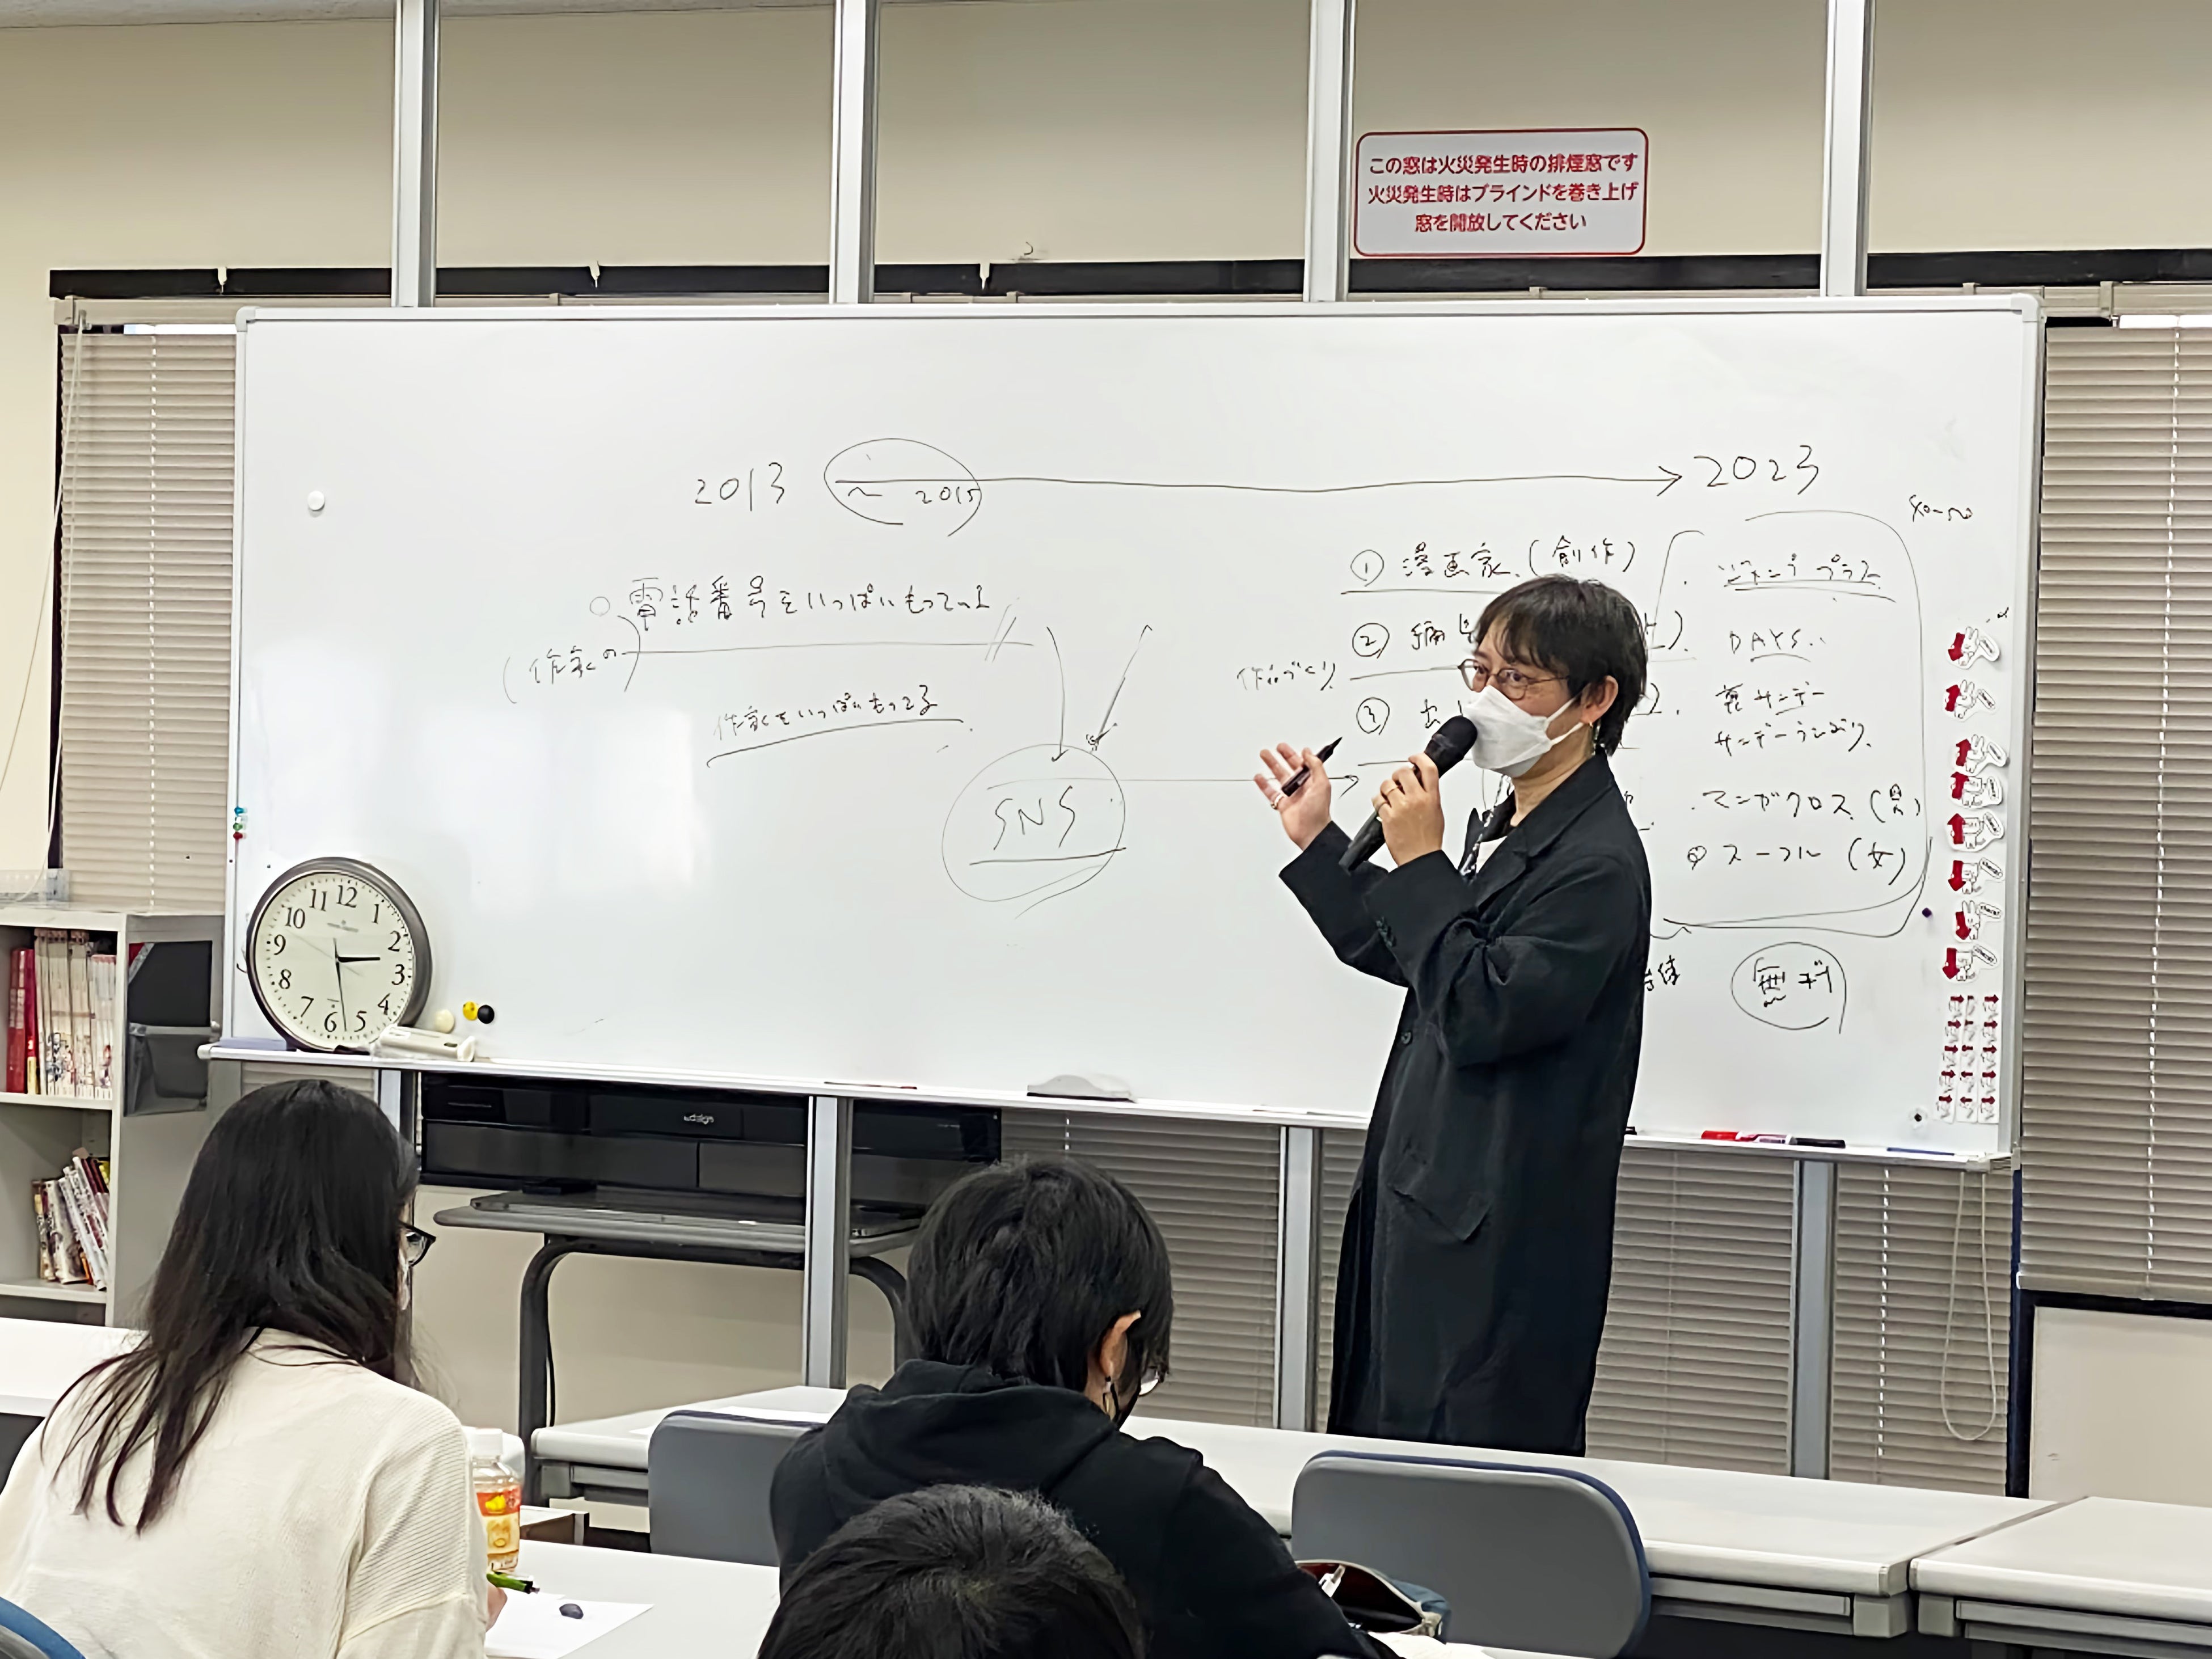 この窓は火災発生時の排煙窓です
火災発生時はブラインドを巻き上げ
窓を開放してください
2013 〜 2015 → 2023
○ 電話番号をいっぱいもっている
(作家の)
作家をいっぱいもってる
SNS
作品づくり
① 漫画家 (創作)
② 編
③ 出
ジャンププラス
DAYS
裏サンデー
サンデーうぇぶり
マンガクロス (男)
スーフル (女)
無料
11 12 1
10 2
9 3
8 4
7 6 5